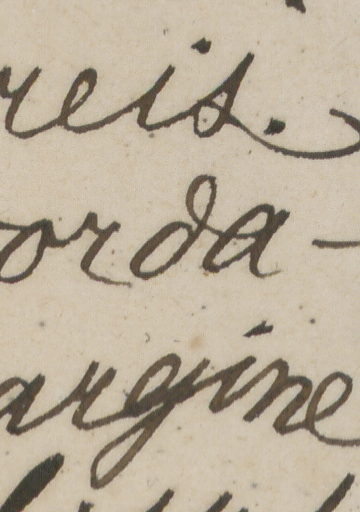 reis.
orda-
argine